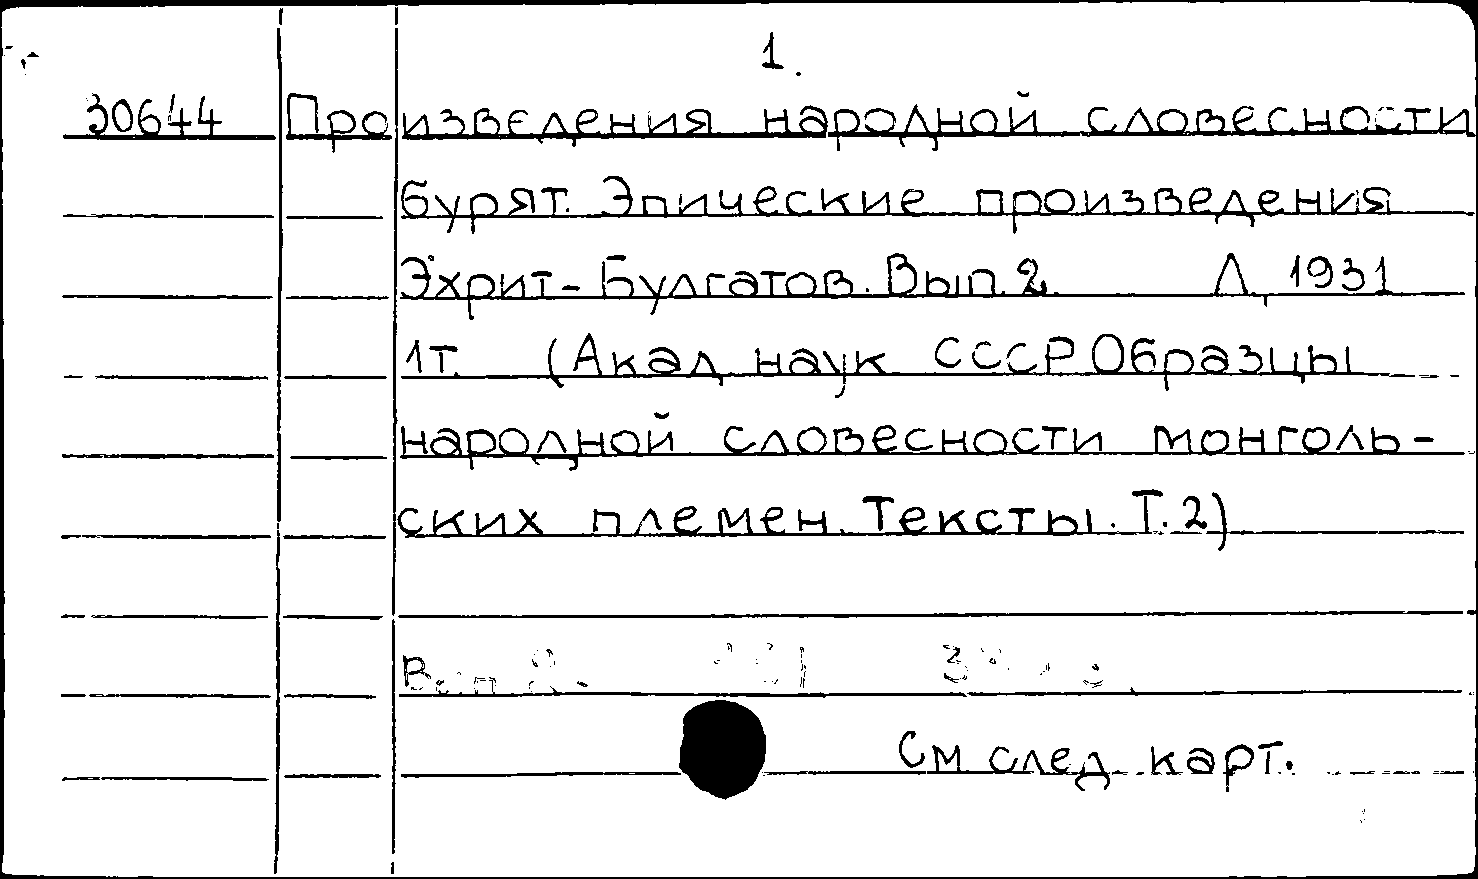 1.
30644 Произведения народной словесности
бурят. Эпические произведения
Эхрит-Булгатов. Вып. 2. Л, 1931
1т. (Акад наук СССР Образцы
народной словесности монголь-
ских племен. Тексты. Т.2)
Вып 2.
См след карт.